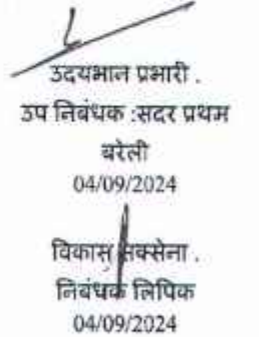 उदयभान प्रभारी .
उप निबंधक :सदर प्रथम
बरेली
04/09/2024
विकास सक्सेना .
निबंधक लिपिक
04/09/2024